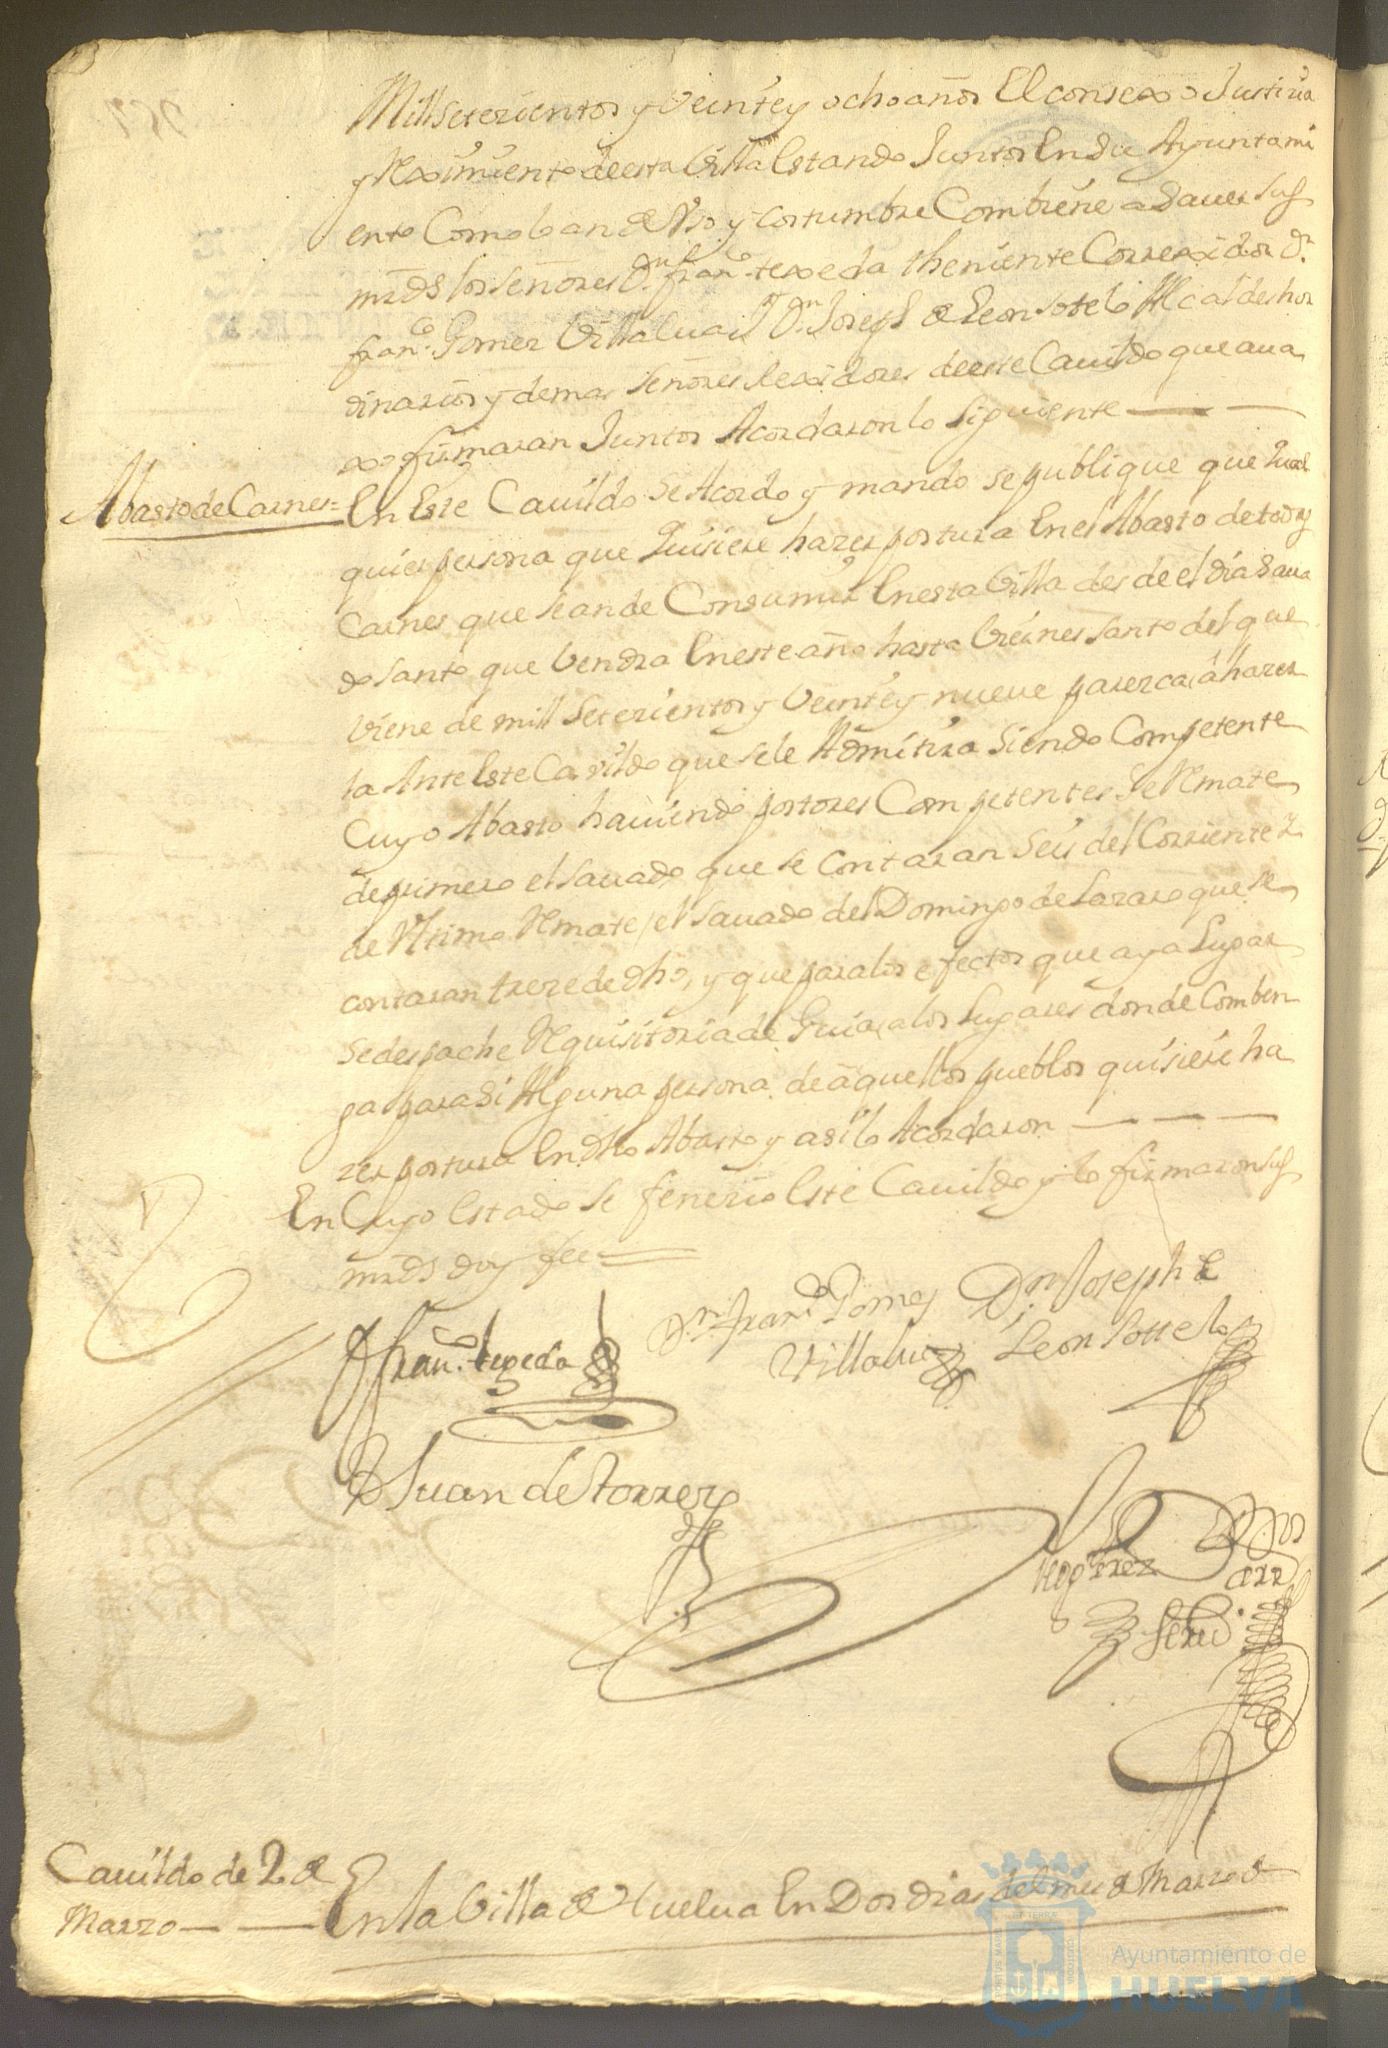 Mill setezientos y Veinte y ocho años El consexo Justizia
y Reximiento de esta Villa Estando Juntos En su Ayuntami
ento Como lo an de Vso y costumbre Combiene a Sauer sus
mrds los señores Dn franco texeda theniente Correxidor Dn
franco Gomez Villalua, Dn Joseph de Leon Sotelo Alcaldes hor
dinarios y demas señores Rexidores de este Cauildo que aua
xo firmaran Juntos Acordaron lo siguiente
Abasto de Carnes =
En Este Cauildo Se Acordo y mando se publique que qual
quier persona que quisiere hazer postura En el Abasto de todas
Carnes que se an de Consumir En esta Villa desde el dia Saua
do santo que Vendra En este año hasta Viernes santo del que
viene de mill setezientos y Veinte y nueve parezca a hazer
la Ante Este Cavildo que se le Admitira siendo Competente
Cuyo Abasto hauiendo postores Competentes Se Remate
de primero el sauado que se contaran seis del Corriente y
de Vltimo Remate el sauado del Domingo de Lazaro que se
contaran treze de dho, y que para los efectos que aya Lugar
Se despache Requisitoria de Guia a los Lugares donde Comben
ga para si Alguna persona de aquellos pueblos quisiere ha
zer postura En dho Abasto y asi lo Acordaron
En Cuyo Estado se fenezio Este Cauildo y lo firmaron sus
mrds doy fee
Dn franco texeda
Dn franco Gomez
Villalua
Dn Joseph de
Leon Sottelo
D Juan de torres
Cauildo de 2 de
Marzo
En la Villa de Huelua En Dos dias del mes de Marzo de
PORTUS MARIS
ET TERRAE
CUSTODIA
Ayuntamiento de
HUELVA